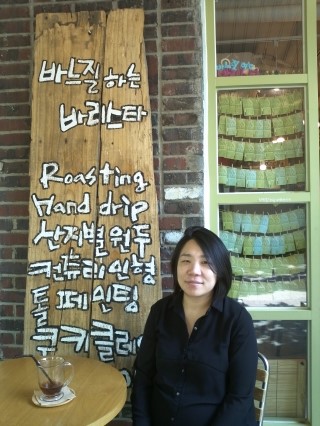 바느질 하는
바리스타
Roasting
Hand drip
산지별 원두
컨츄리 인형
톨 페인팅
쿠키클레